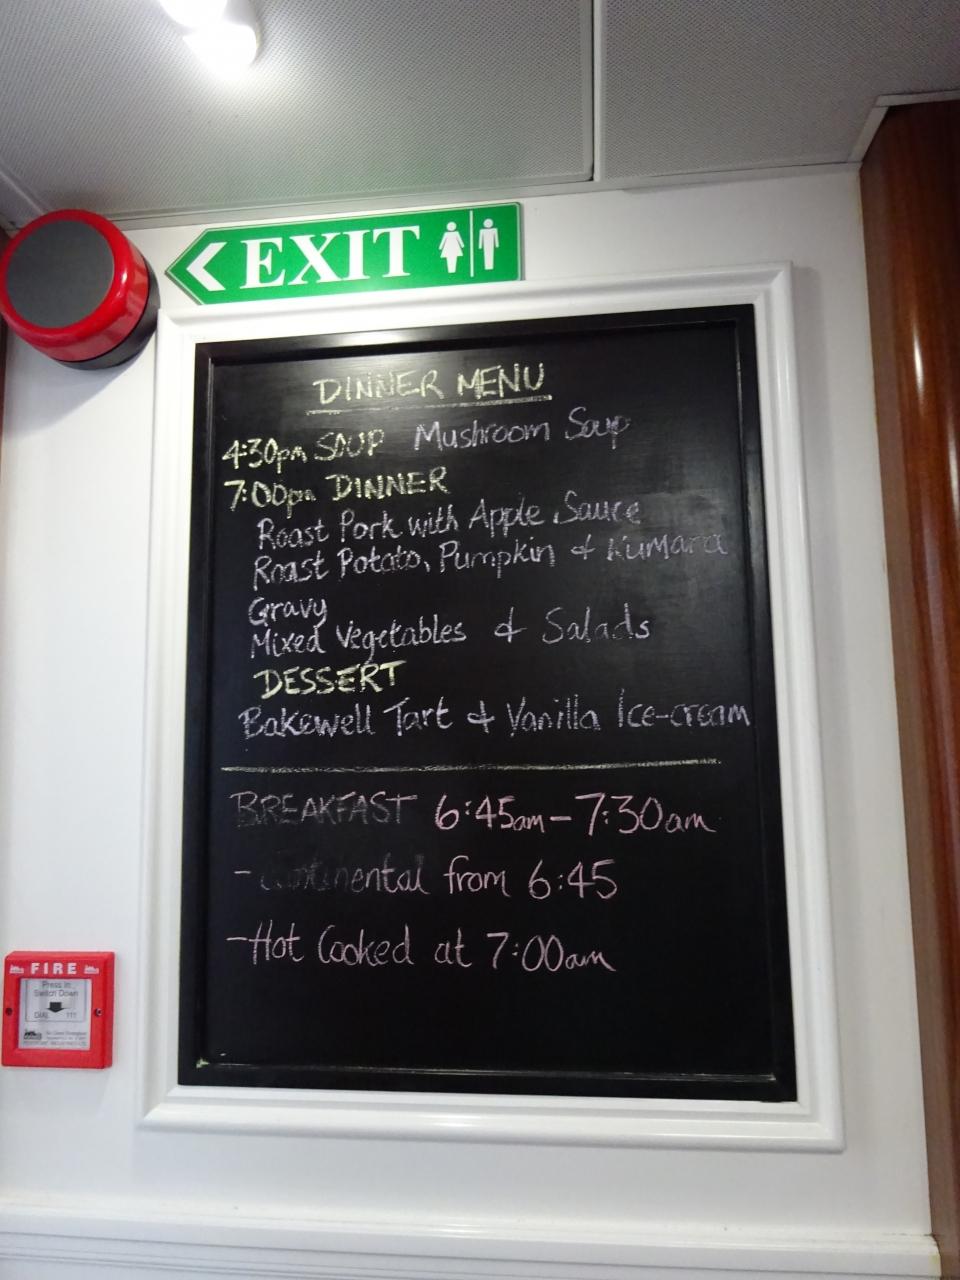 EXIT
DINNER MENU
4:30pm SOUP Mushroom Soup
7:00pm DINNER
Roast Pork with Apple Sauce
Roast Potato, Pumpkin & Kumara
Gravy
Mixed Vegetables & Salads
DESSERT
Bakewell Tart & Vanilla Ice-cream
BREAKFAST 6:45am - 7:30am
- Continental from 6:45
- Hot Cooked at 7:00am
FIRE
Press in
Switch Down
DIAL 111